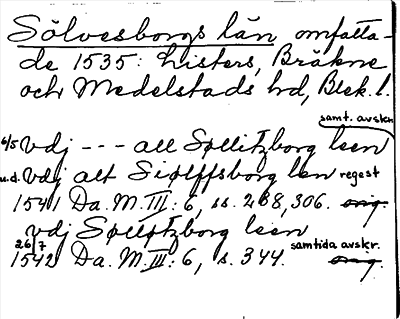 Sölvesborgs län omfatta-
de 1535: Listers, Bräkne
och Medelstads hd, Blek. l.
samt. avskr.
6/5 vdj --- all Søllitzborg leen
u.d. Vdj alt Siølffsborg len regest
1541 Da. M. III: 6, ss. 268, 306. orig.
vdj Sølløtzborg leen
26/7 samtida avskr.
1542 Da. M. III: 6, s. 344. orig.